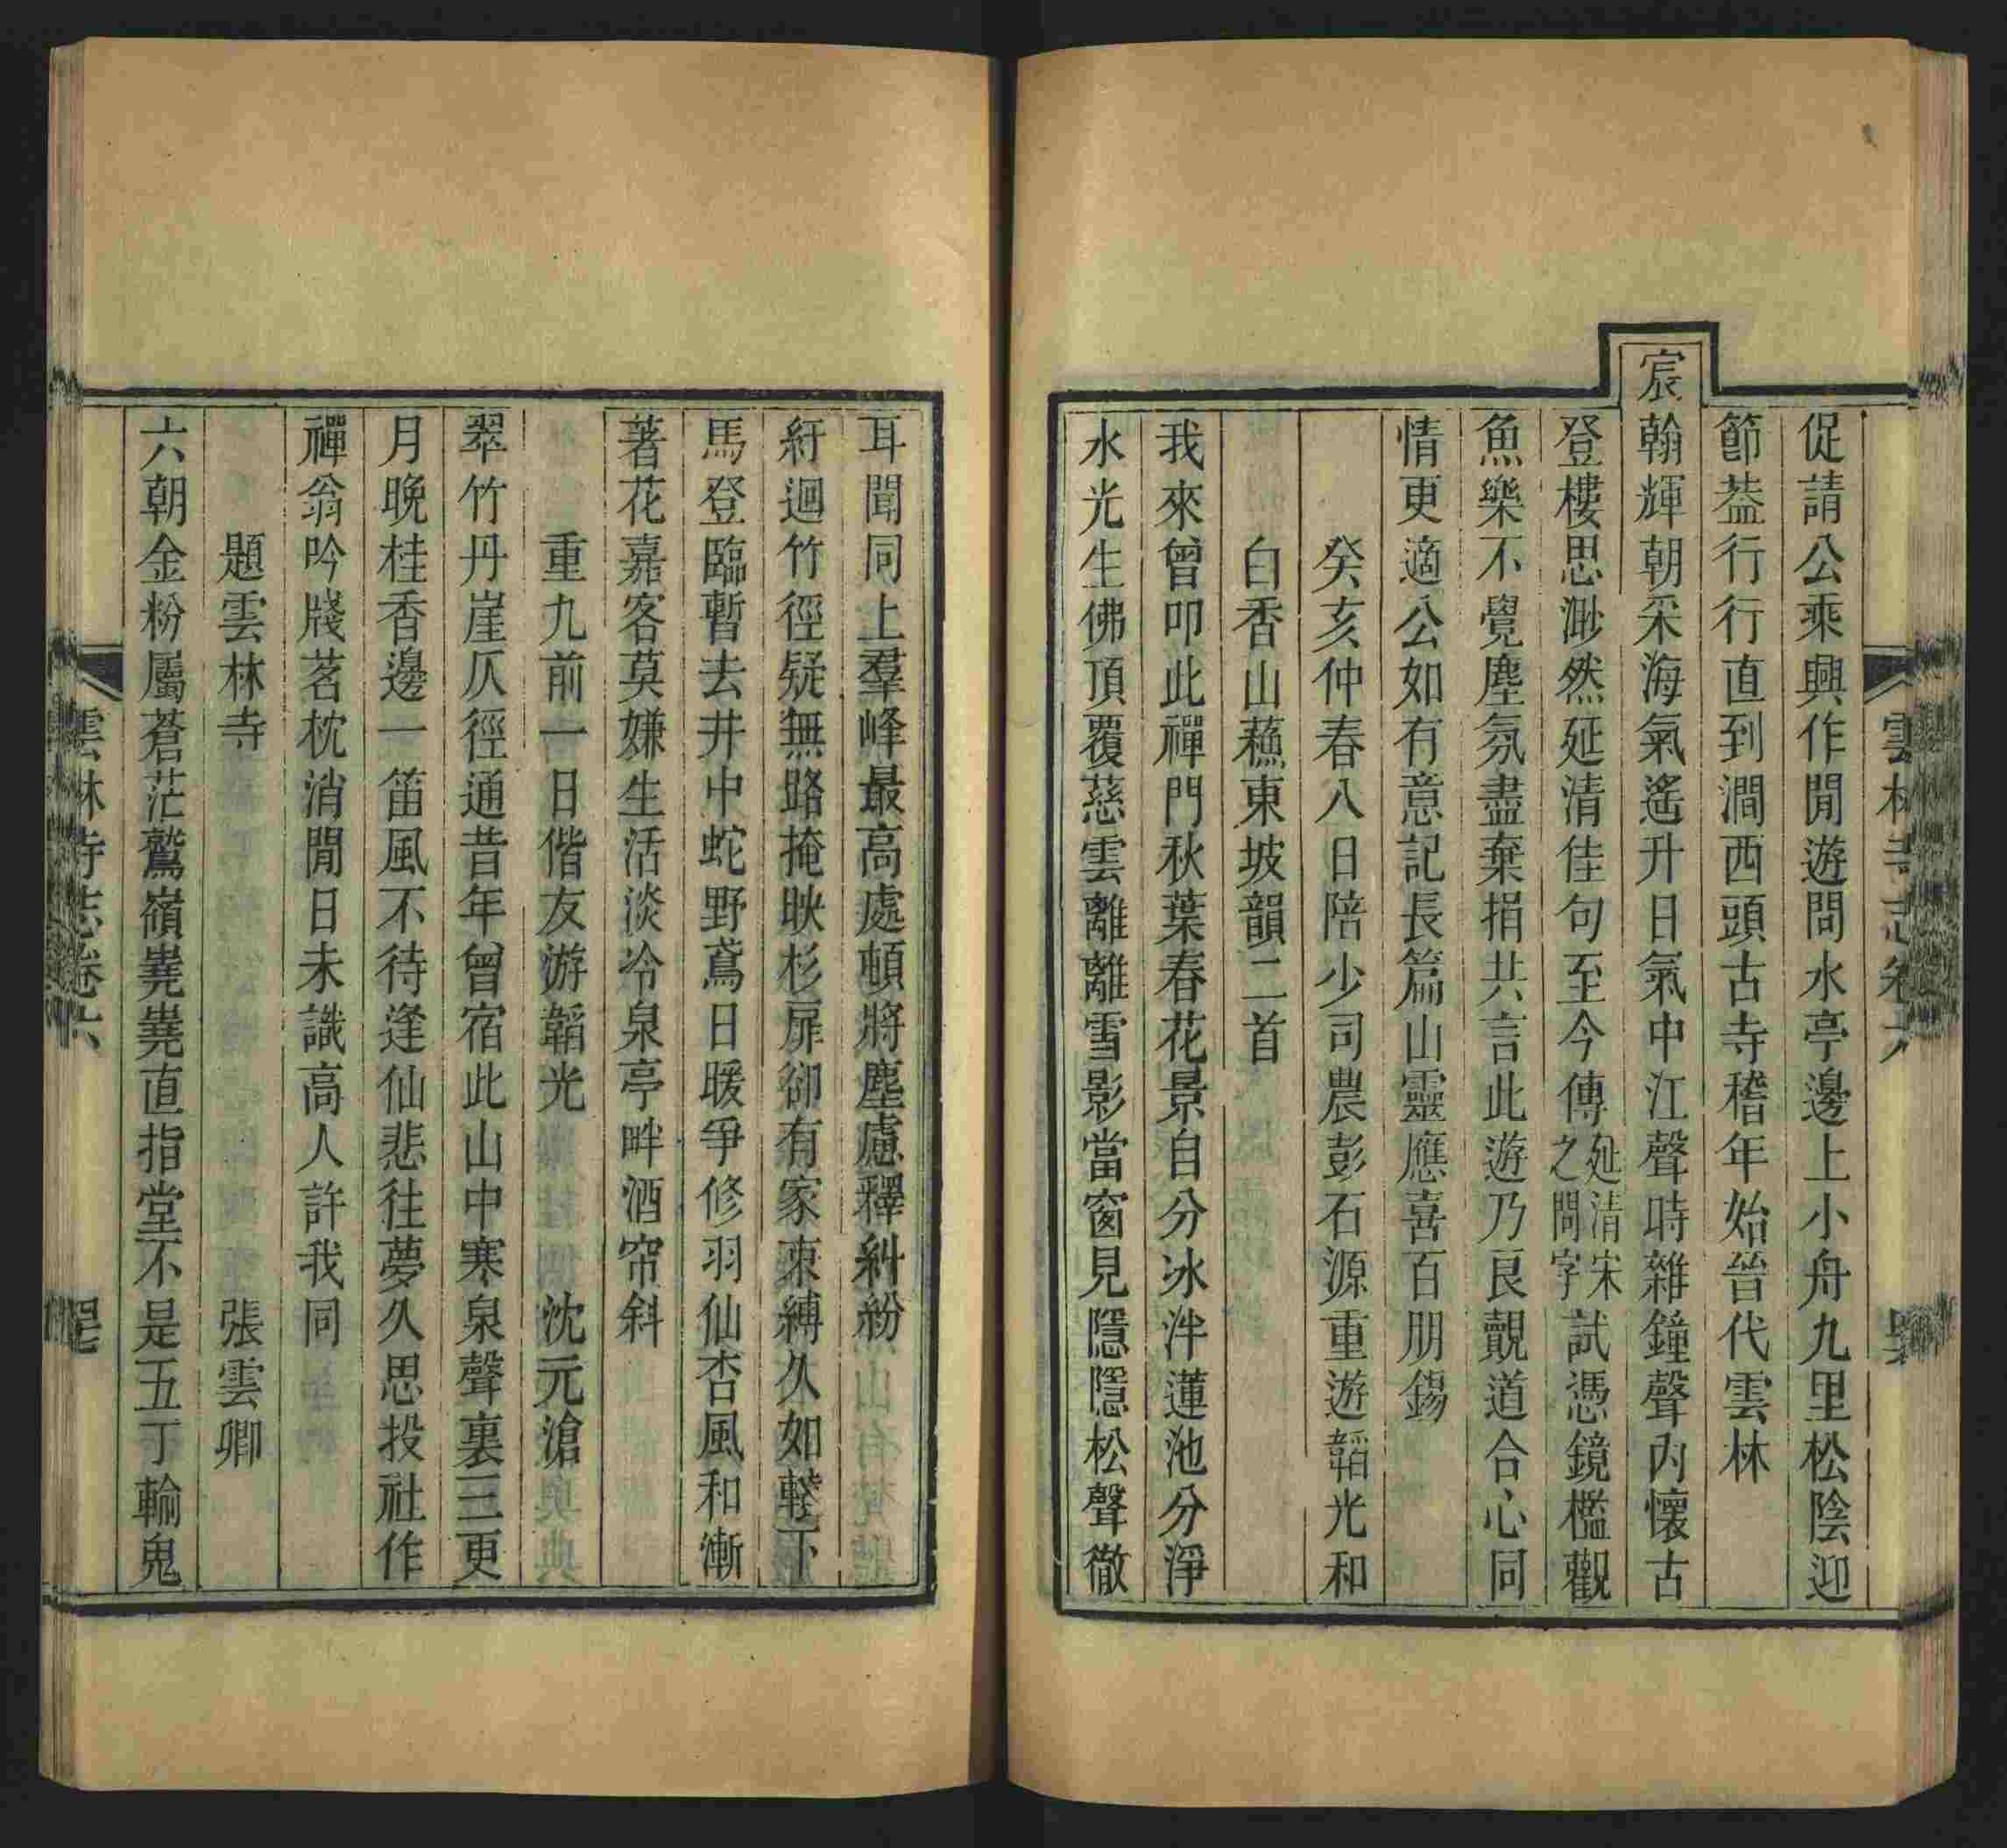 促請公乘興作閒遊問水亭邊上小舟九里松陰迎
節葢行行直到澗西頭古寺稽年始晉代雲林
宸翰輝朝采海氣遙升日氣中江聲時雜鐘聲內懷古
登樓思渺然延清佳句至今傳延清宋之問字試憑鏡檻觀
魚樂不覺塵氛盡棄捐共言此遊乃良覿道合心同
情更適公如有意記長篇山靈應喜百朋錫
癸亥仲春八日陪少司農彭石源重遊韜光和
白香山蘓東坡韻二首
我來曾叩此禪門秋葉春花景自分冰泮蓮池分淨
水光生佛頂覆慈雲離離雪影當窗見隱隱松聲徹
耳聞同上羣峰最高處頓將塵慮釋糾紛
紆迴竹徑疑無路掩映杉扉卻有家束縛久如轅下
馬登臨暫去井中蛇野鳶日暖爭修羽仙杏風和漸
著花嘉客莫嫌生活淡冷泉亭畔酒帘斜
重九前一日偕友游韜光 沈元滄
翠竹丹崖仄徑通昔年曾宿此山中寒泉聲裏三更
月晚桂香邊一笛風不待逢仙悲往夢久思投社作
禪翁吟牋茗枕消閒日未識高人許我同
題雲林寺 張雲卿
六朝金粉屬蒼茫鷲嶺嶤嶤直指堂不是五丁輸鬼
雲林寺志卷六